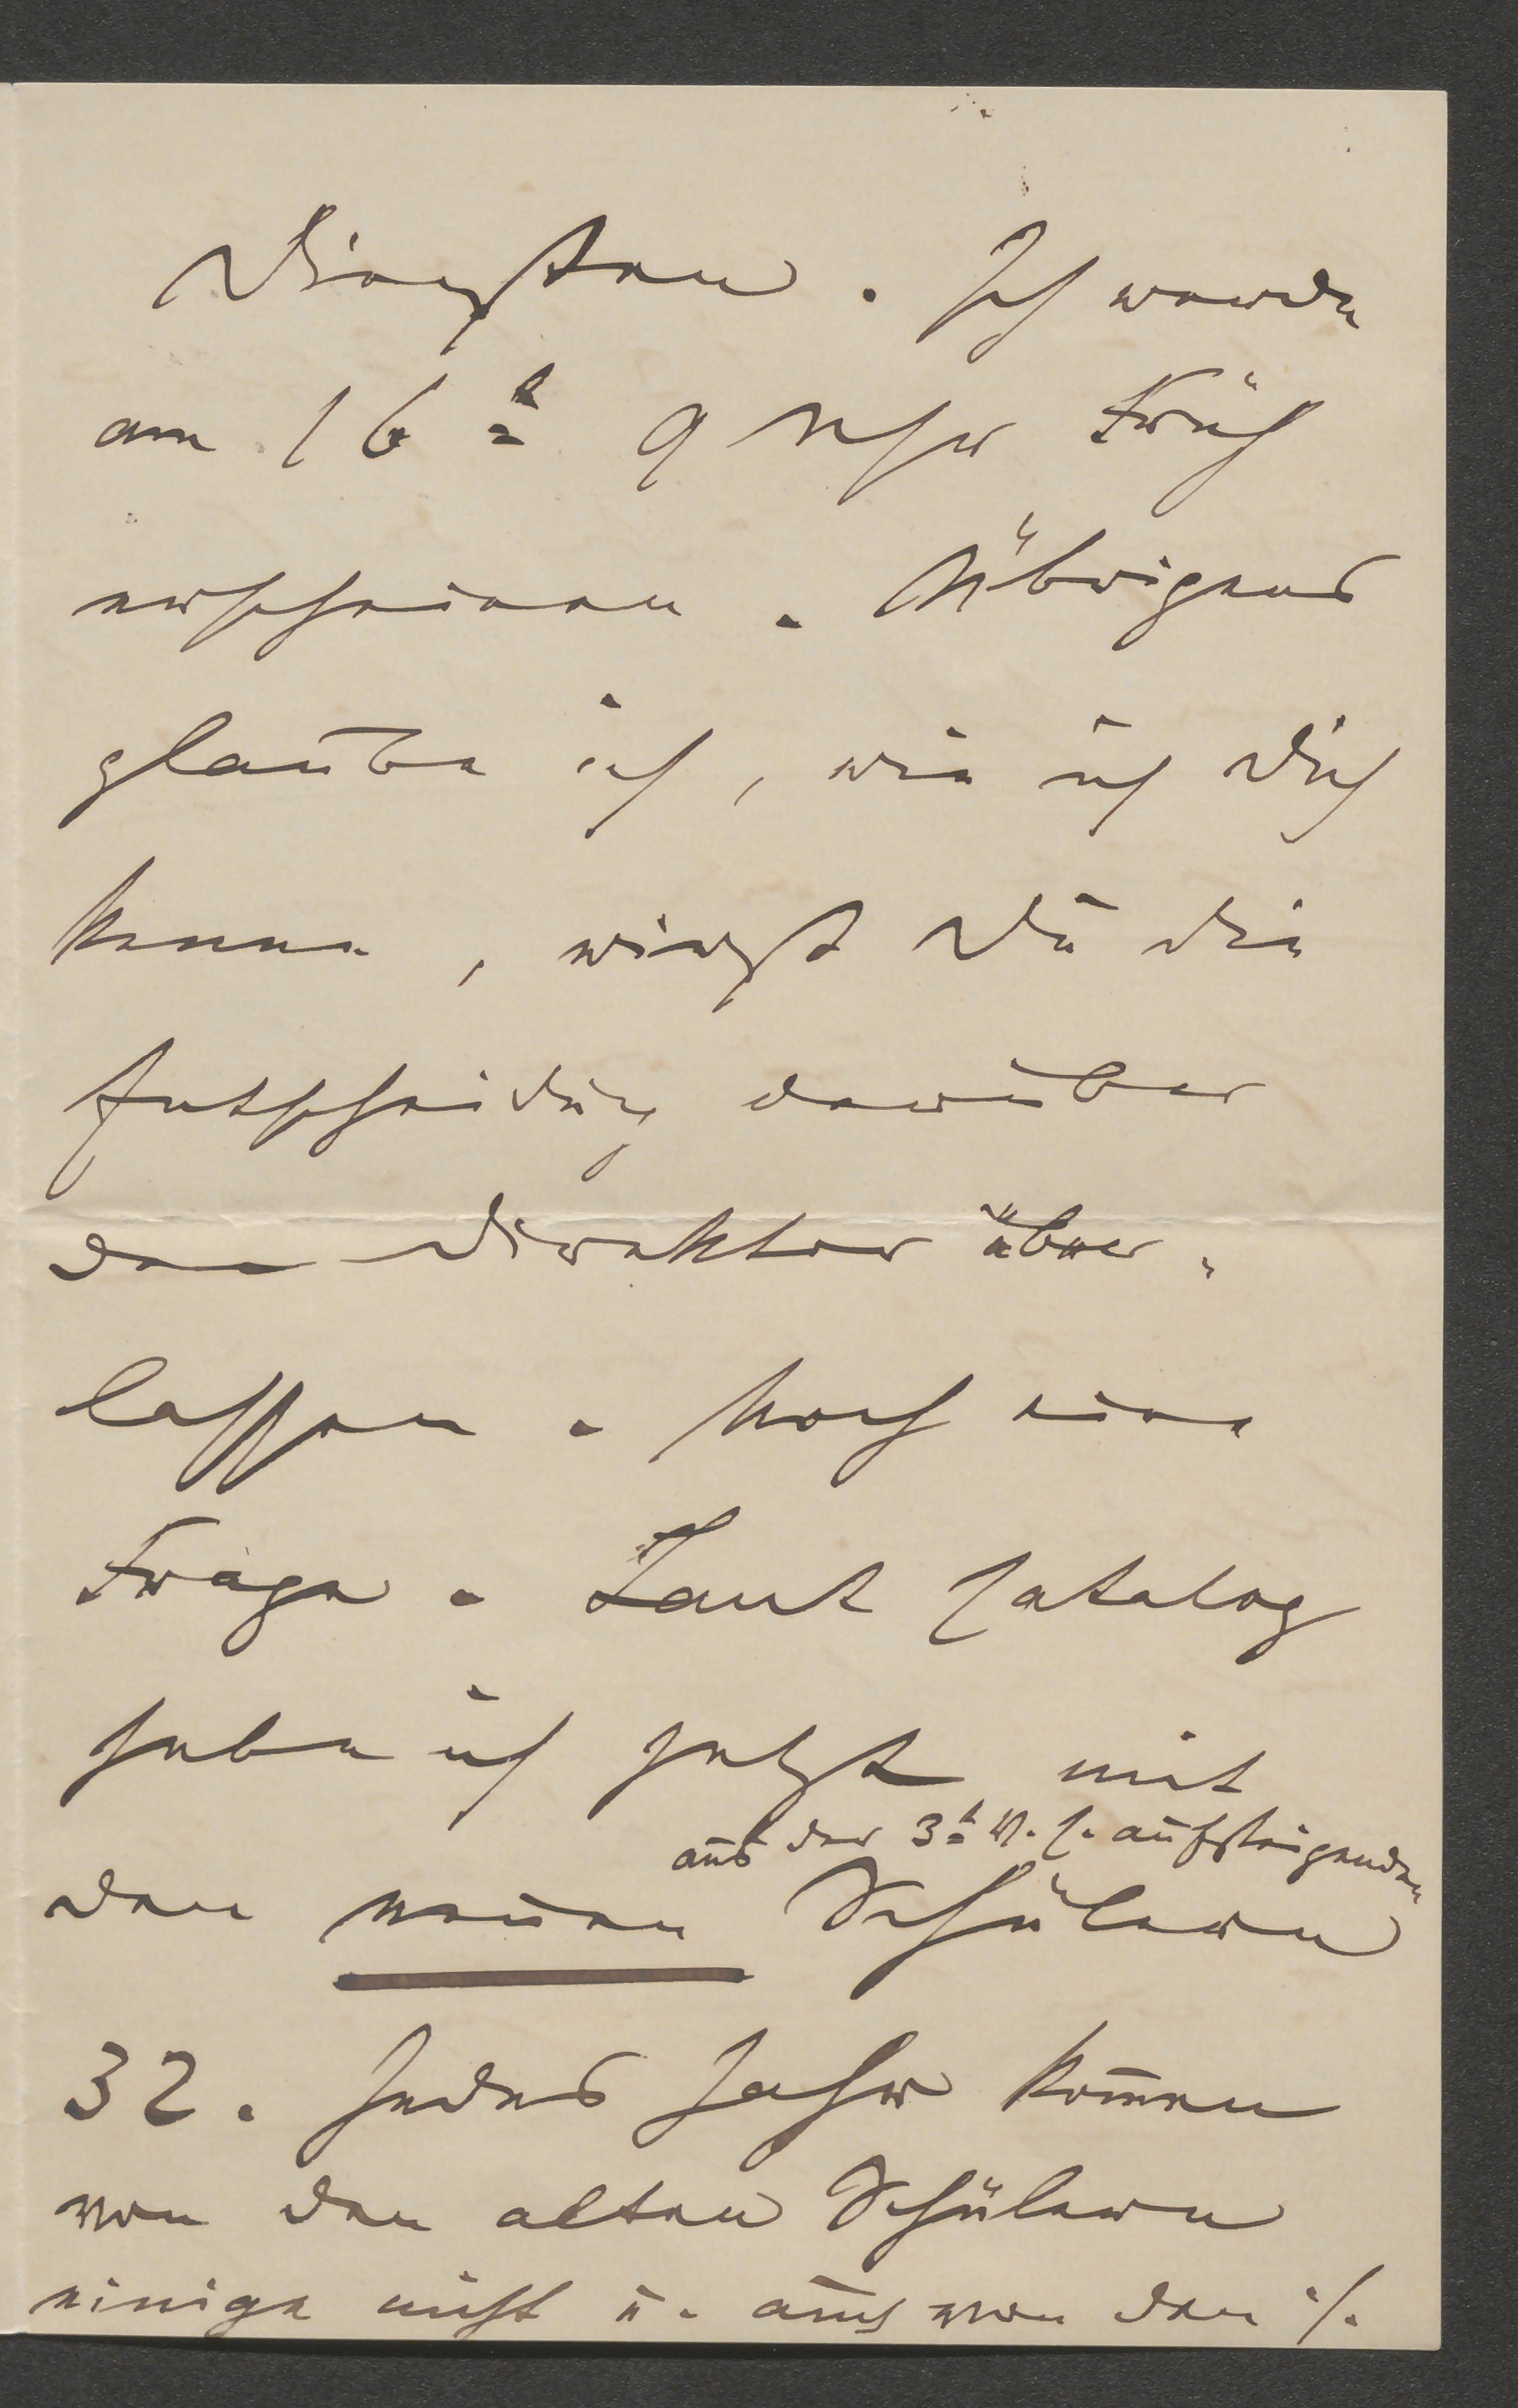 Diensten. Ich werde
am 16t 9 Uhr Früh
erscheinen. Übrigens
glaube ich, wie ich Dich
kenne, wirst Du die
Entscheidung darüber
dem Direktor über-
lassen. Noch eine
Frage. Laut Catalog
habe ich jetzt mit
aus der 3t A. C. aufsteigenden
den neuen Schülern
32. Jedes Jahr kom̄en
von den alten Schülern
einige nicht u. auch von den ./.